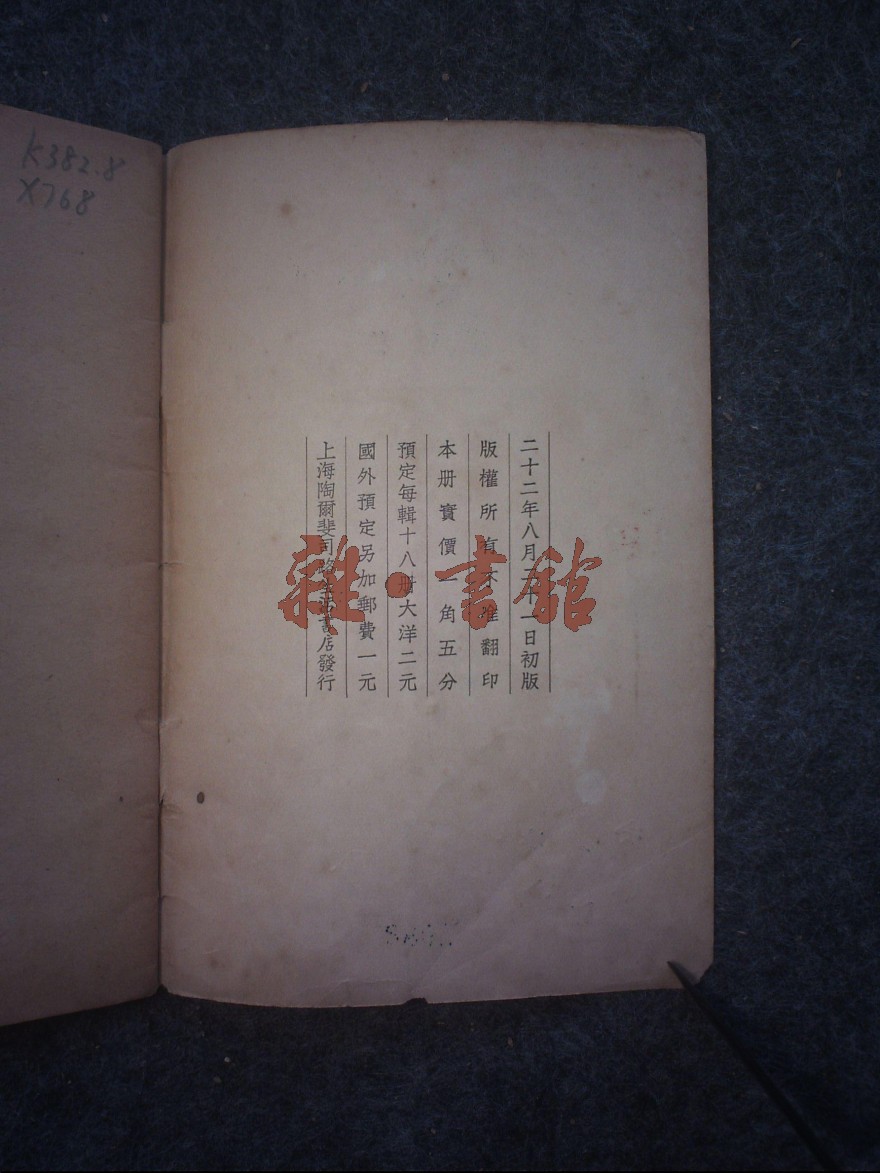 K382.8
X768
二十二年八月二十一日初版
版權所有不准翻印
本册實價一角五分
預定每輯十八册大洋二元
國外預定另加郵費一元
上海陶爾斐司路書店發行
雜·書館